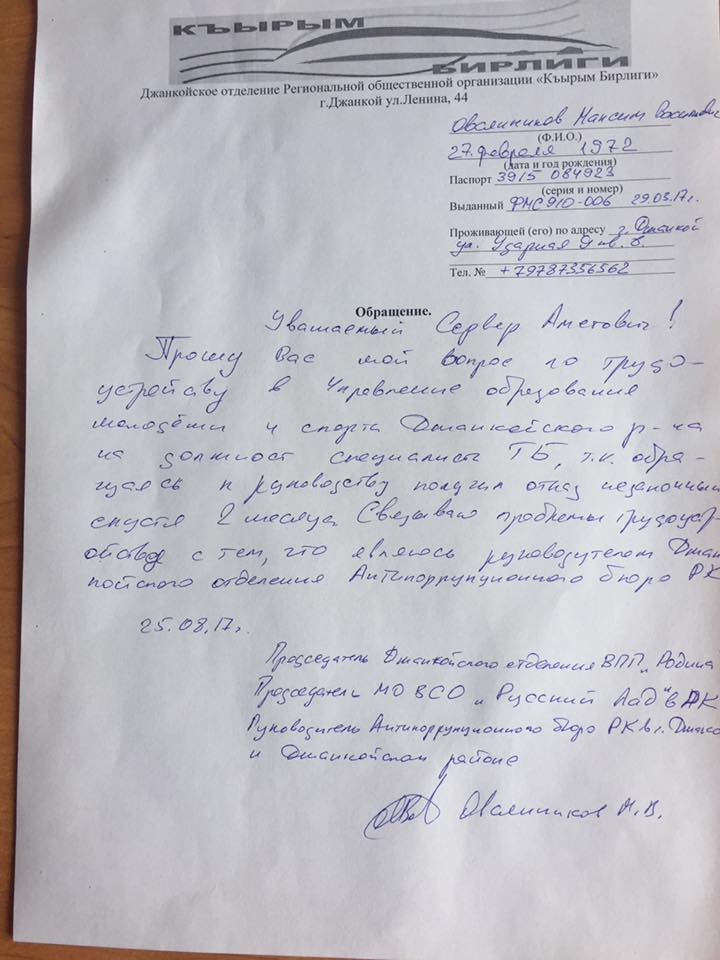 КЪЫРЫМ
БИРЛИГИ
Джанкойское отделение Региональной общественной организации «Къырым Бирлиги»
г.Джанкой ул.Ленина, 44
Овсянников Максим
(Ф.И.О.)
27. февраля 1972
(дата и год рождения)
Паспорт 3915 084923
(серия и номер)
Выданный ФМС 910-006 29.03.17г.
Проживающей (его) по адресу г. Джанкой
ул. Ударная
Тел. № +79787356562
Обращение.
Уважаемый Сервер Аметович!
Прошу Вас мой вопрос по трудо-
устройству в Управление образования
молодёжи и спорта Джанкойского р-на
на должност специалист ТБ, т.к. обра-
щаясь к руководству получил отказ незаконный
спустя 2 месяца. Связываю проблемы трудоустр
ойства с тем, что являюсь руководителем Джан
койского отделения Антикоррупционного бюро РК
25.08.17г.
Председатель Джанкойского отделения ВПП „Родина
Председатель МО ВСО „Русский Лад" в РК
Руководитель Антикоррупционного бюро РК в г. Джанко
и Джанкойском районе
Овсянников М.В.